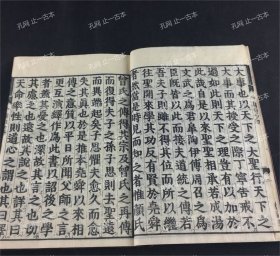 大事也以天下之大聖行天下之
大事而其授受之際丁寧告戒不
過如此則天下之理豈有以加於
此哉自是以來聖聖相承若成湯
文武之爲君皐陶伊傅周召之爲
臣既皆以此而接夫道統之傳若
吾夫子則雖不得其位而所以繼
往聖開來學其功反有賢於堯舜
者然當是時見而知之者惟顏氏
曾氏之傳得其宗及曾氏之再傳
而復得夫子之孫子思則去聖遠
而異端起矣子思懼夫愈久而愈
失其眞也於是推本堯舜以來相
傳之意質以平日所聞父師之言
更互演繹作爲此書以詔後之學
者蓋其憂之也深故其言之也切
其慮之也遠故其說之也詳其曰
天命率性則道心之謂也其曰擇
孔网 止一古本
孔网 止一古本
孔网 止一古本